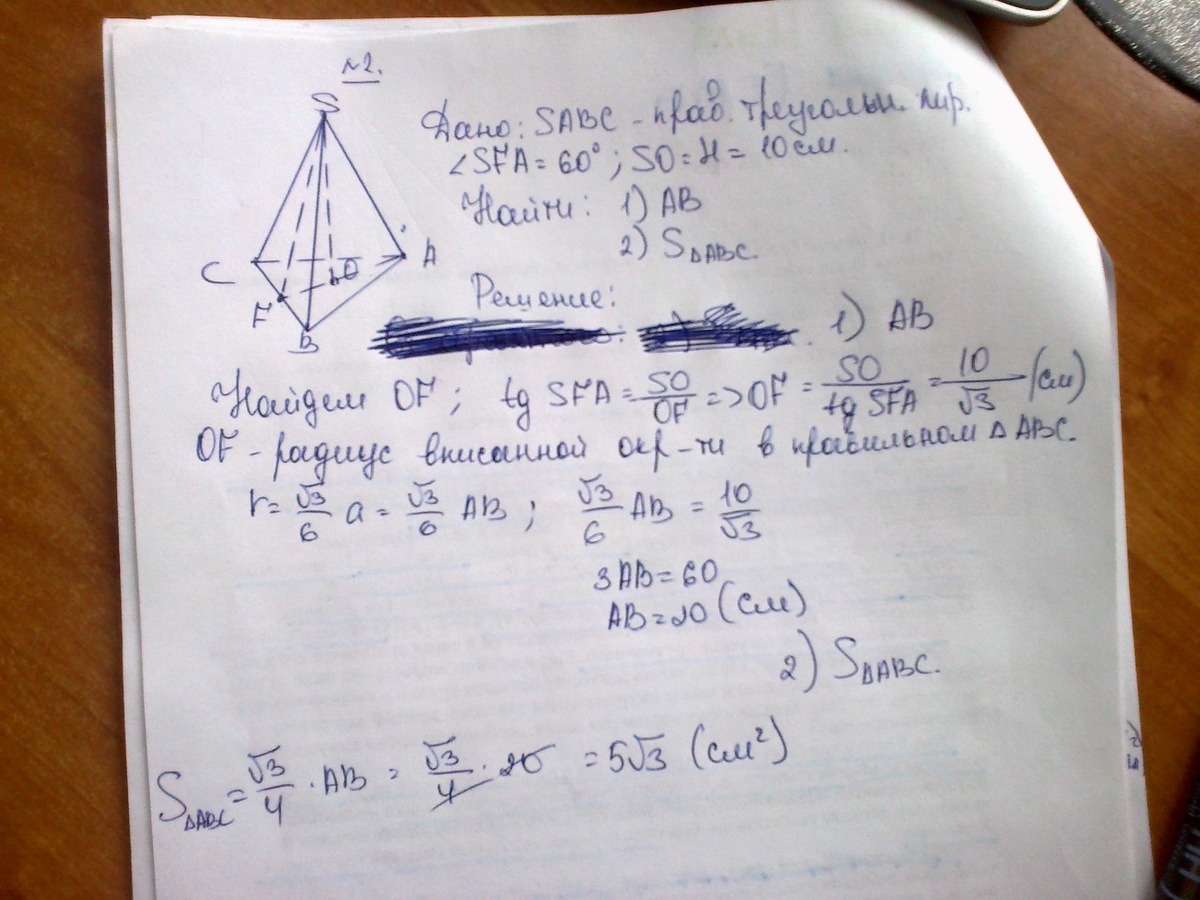 №2.
S
C
A
O
F
B
Дано: SABC - прав. треугольн. пир.
∠SFA = 60°; SO = H = 10 см.
Найти: 1) AB
2) S△ABC.
Решение:
1) AB
Найдем OF; tg SFA = SO/OF => OF = SO/tg SFA = 10/√3 (см)
OF - радиус вписанной окр-ти в правильном △ ABC.
r = √3/6 a = √3/6 AB; √3/6 AB = 10/√3
3AB = 60
AB = 20 (см)
2) S△ABC.
S△ABC = √3/4 · AB = √3/4 · 20 = 5√3 (см²)